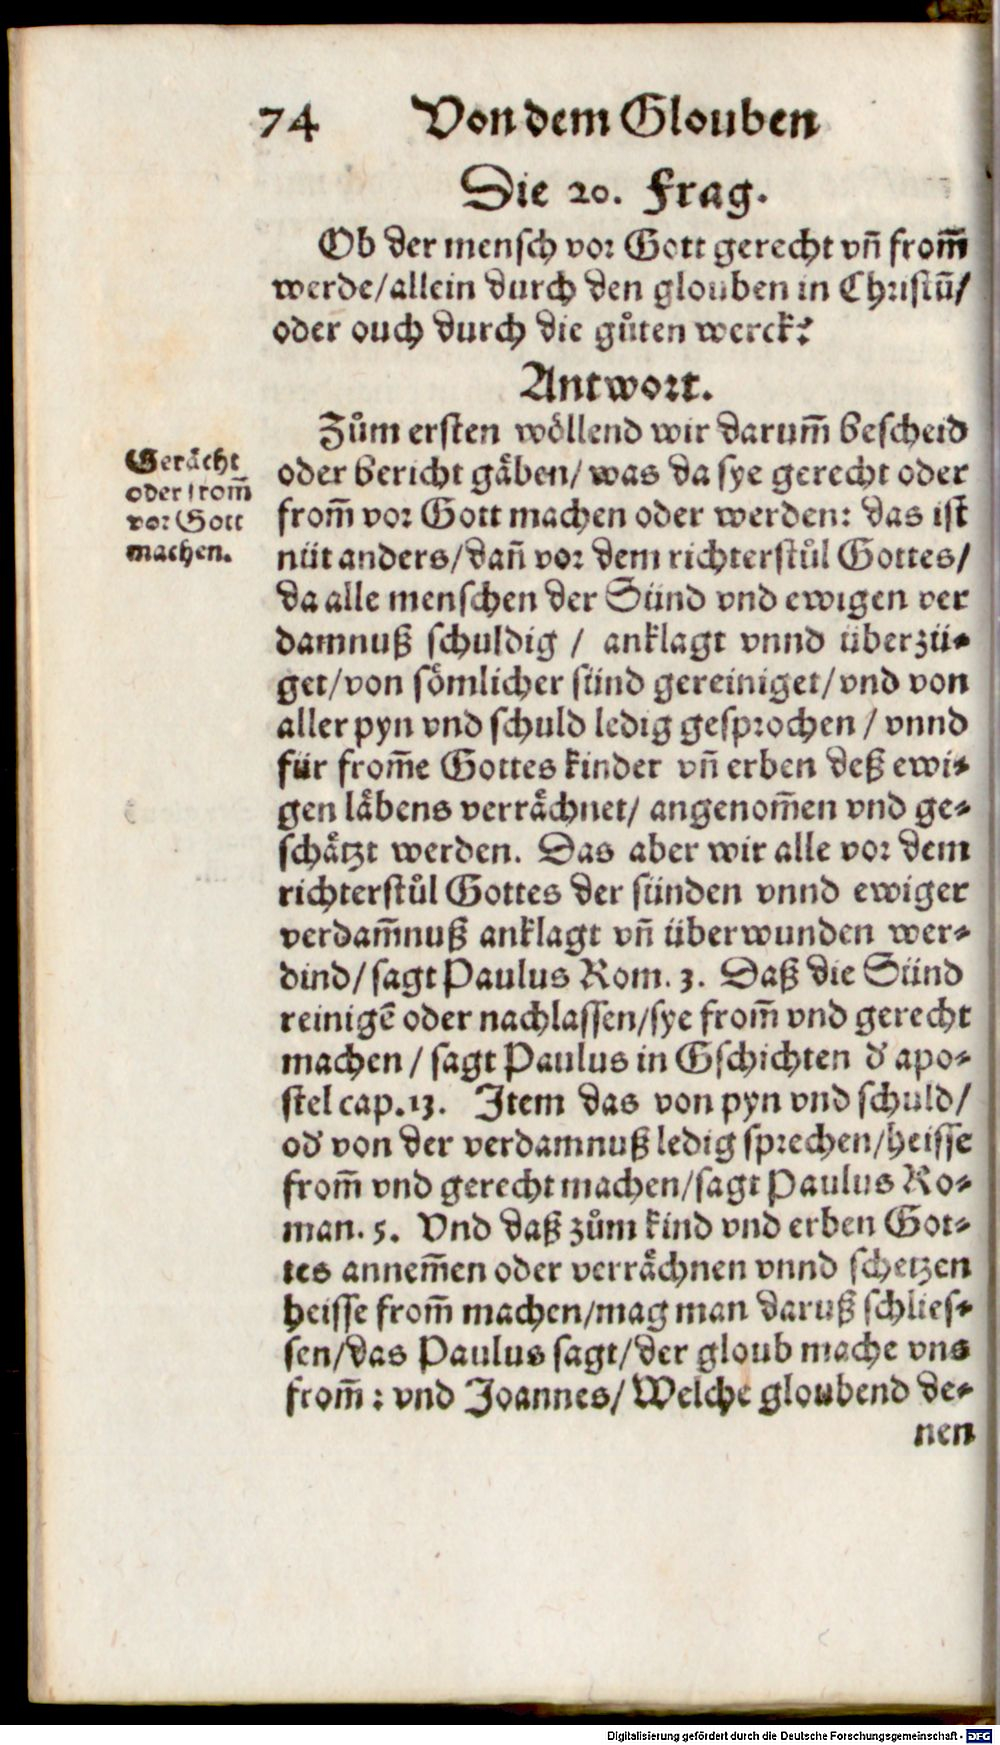 74 Von dem Glouben
Die 20. Frag.
Ob der mensch vor Gott gerecht vñ from̃
werde/allein durch den glouben in Christũ/
oder ouch durch die gůten werck?
Antwort.
Zům ersten wöllend wir darum̃ bescheid
oder bericht gäben/ was da sye gerecht oder
from̃ vor Gott machen oder werden: das ist
nüt anders/dañ vor dem richterstůl Gottes/
da alle menschen der Sünd vnd ewigen ver
damnuß schuldig / anklagt vnnd überzü-
get/von sömlicher sünd gereiniget/vnd von
aller pyn vnd schuld ledig gesprochen / vnnd
für from̃e Gottes kinder vñ erben deß ewi-
gen läbens verrächnet/ angenom̃en vnd ge-
schätzt werden. Das aber wir alle vor dem
richterstůl Gottes der sünden vnnd ewiger
verdam̃nuß anklagt vñ überwunden wer-
dind/sagt Paulus Rom. 3. Daß die Sünd
reinigẽ oder nachlassen/sye from̃ vnd gerecht
machen / sagt Paulus in Gschichten d' apo-
stel cap.13. Item das von pyn vnd schuld/
od' von der verdamnuß ledig sprechen/heisse
from̃ vnd gerecht machen/sagt Paulus Ro-
man. 5. Vnd daß zům kind vnd erben Got-
tes annem̃en oder verrächnen vnnd schetzen
heisse from̃ machen/mag man daruß schlies-
sen/das Paulus sagt/der gloub mache vns
from̃ : vnd Joannes/ Welche gloubend de-
nen
Gerächt
oder from̃
vor Gott
machen.
Digitalisierung gefördert durch die Deutsche Forschungsgemeinschaft - DFG